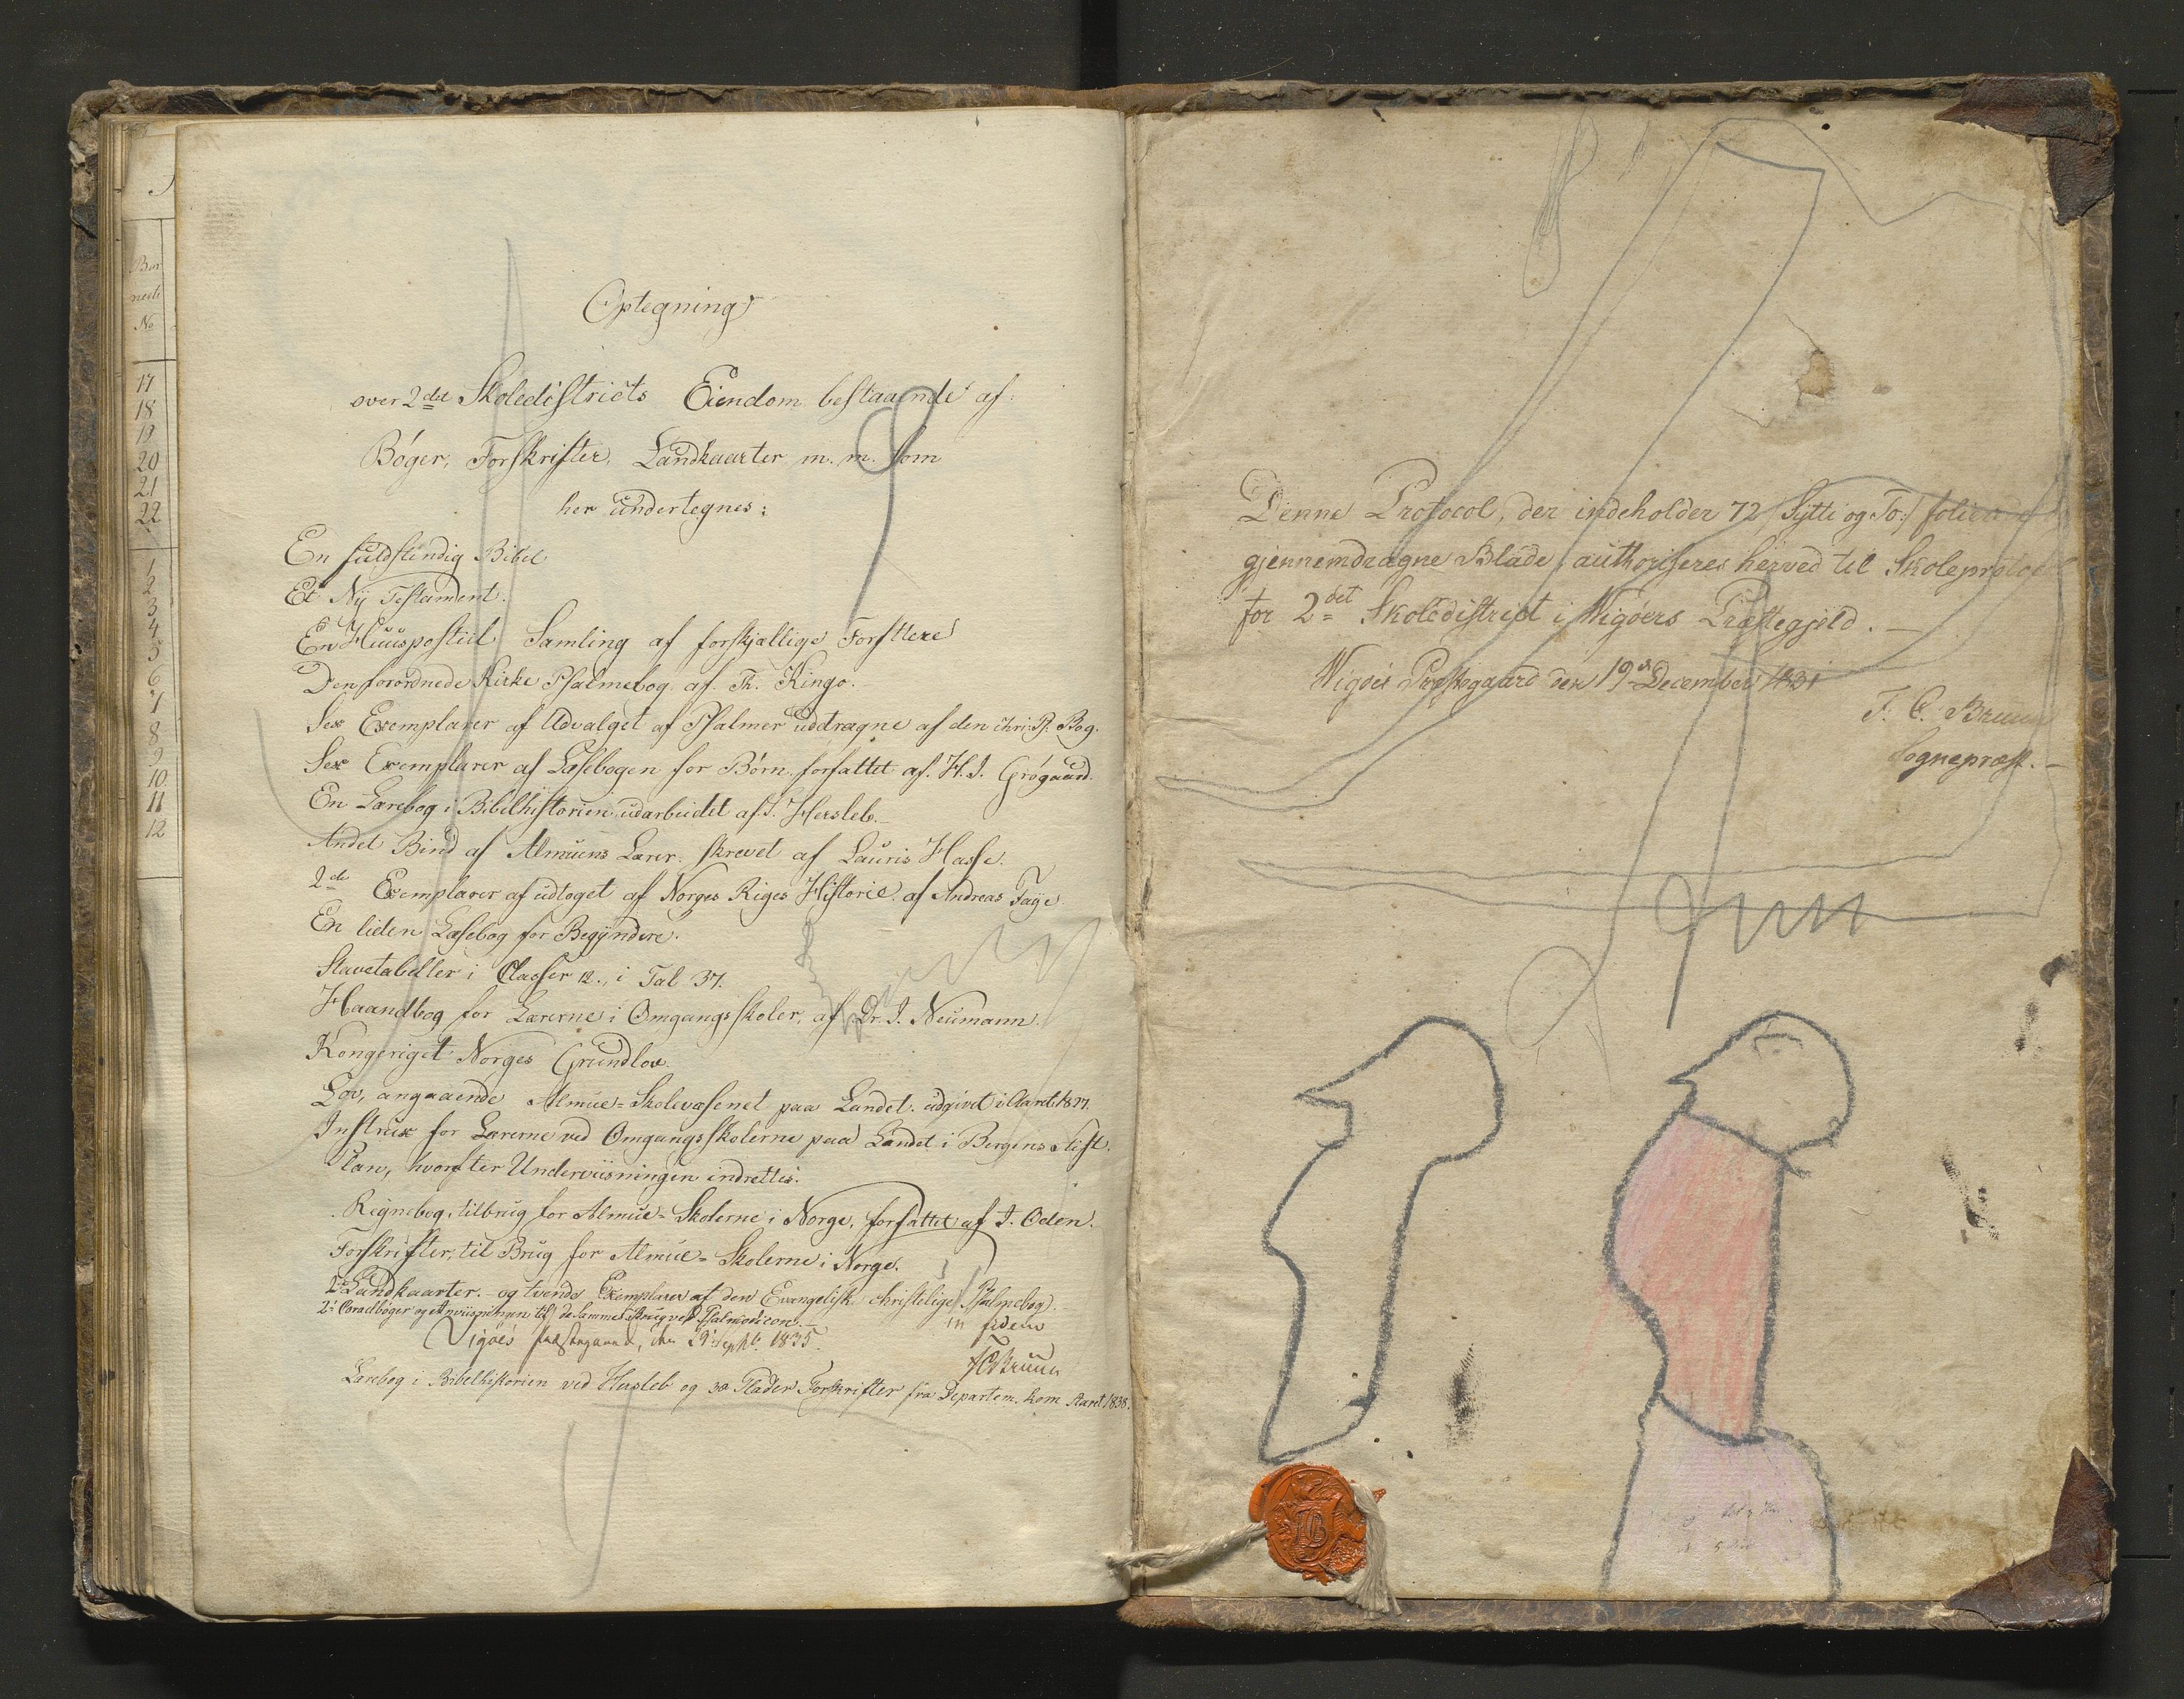 Bør
nets
No
17
18
19
20
21
22
1
2
3
4
5
6
7
8
9
10
11
12
Optegning
over 2det Skoledistricts Eiendom bestaaende af:
Bøger, Forskrifter, Landkaarter m. m. som
her undertegnes:
En fuldstendig Bibel
Et Ny Testament.
En Huuspostiil Samling af forskjællige Forfttere
Den forordnede Kirke Psalmebog af Th. Kingo.
Sex Exemplarer af Udvalget af Psalmer uddragne af den chri. Ps. Bog.
Sex Exemplarer af Læsebogen for Børn, forfattet af H. J. Grøgaard.
En Lærebog i Bibelhistorien udarbeidet af S. Hersleb.
Andet Bind af Almuens Lærer, skrevet af Lauris Hasse.
2de Exemplarer af udtoget af Norges Riges Historie af Andreas Faye
En liden Læsebog for Begyndere.
Stavetabeller i Classer 12., i Tal 37.
Haandbog for Lærerne i Omgangsskoler, af Dr. J. Neumann.
Kongeriget Norges Grundlov.
Lov, angaaende Almue-Skolevæsenet paa Landet. udgivet i Aaret 1827.
Instrux for Lærerne ved Omgangsskolerne paa Landet i Bergens Stift.
Plan, hvorefter Underviisningen indrettes.
Regnebog, tilbrug for Almue-Skolerne i Norge, forfattet af J. Oden.
Forskrifter, til Brug for Almue-Skolerne i Norge.
2 Landkaarter. og tvende Exemplarer af den Evangelisk christelige Psalmebog.
2 Coralbøger og Anviisningen til de sammes Brug ved Psalmodicon.
in fidem
Vigøes Præstegaard, den 29 Septbr. 1835.
FCBruun
Lærebog i Bibelhistorien ved Hersleb og 32 Flader Forskrifter fra Departem. kom Aaret 1838.
Denne Protocol, der indeholder 72 /: Sytti og To :/ folierede
gjennemdragne Blade, authoriseres herved til Skoleprotocol
for 2det Skoledistrict i Wigøers Præstegjeld.
Wigøes Præstegaard den 19de December 1831
F. C. Bruun
Sognepræst.